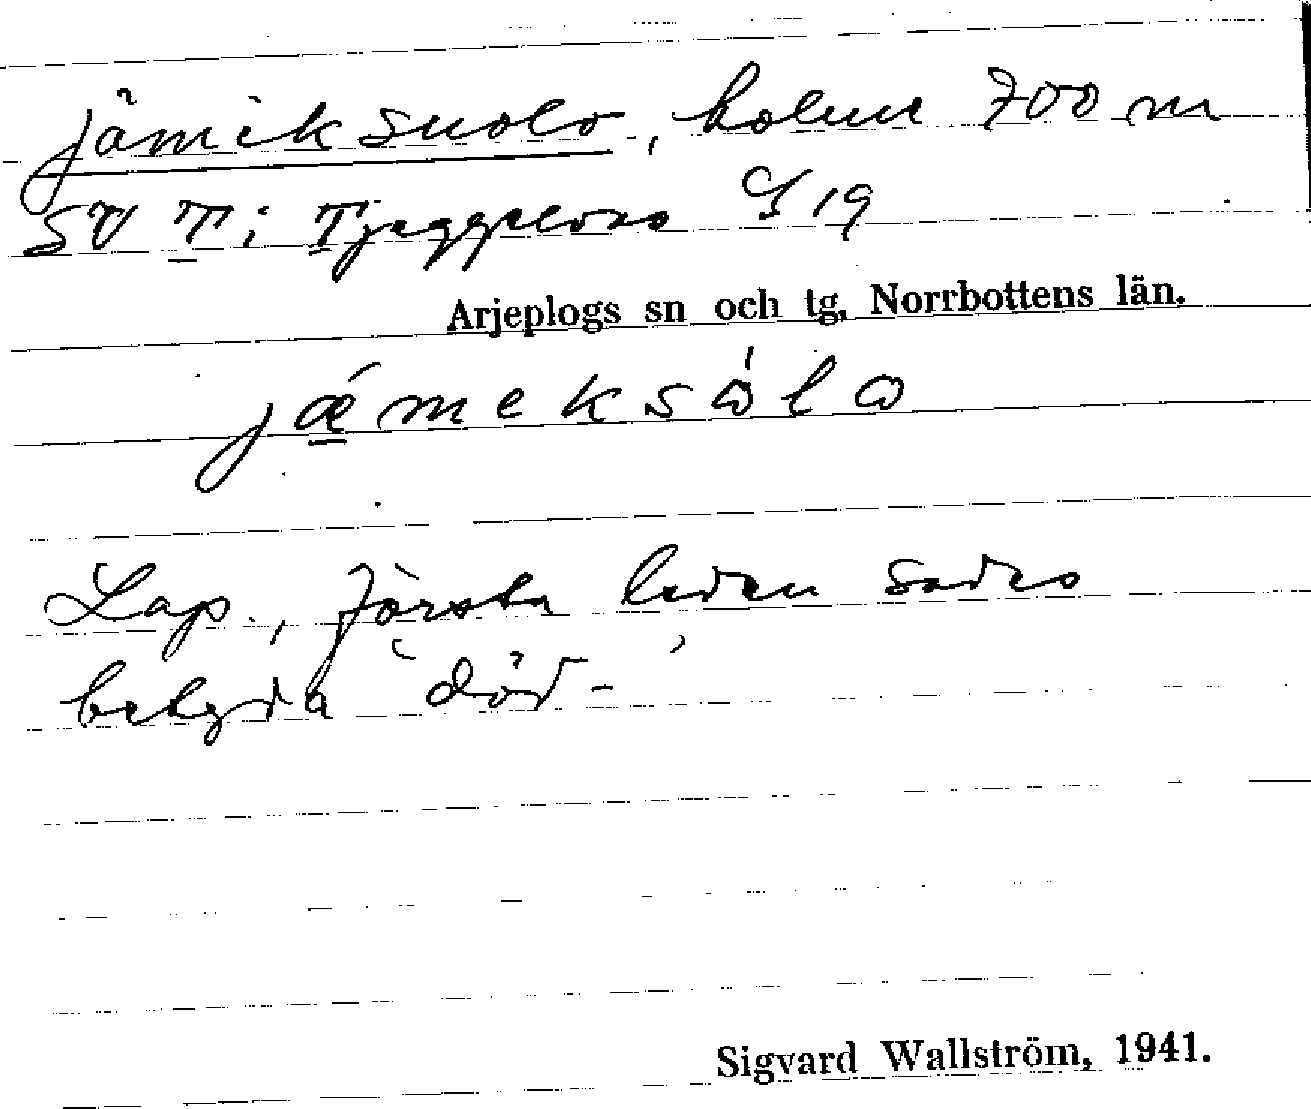 jämiksuolo, holme 700 m
SV T i Tjeggelvas
Arjeplogs sn och tg, Norrbottens län.
jǽmeksώlω
Lap., första leden sades
betyda 'död-'
Sigvard Wallström, 1941.